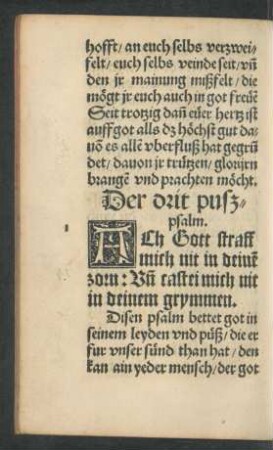 hofft/ an euch selbs verzwei-
felt/ euch selbs veinde seit/ vñ
den jr mainung mißfelt/ die
mögt jr euch auch in got frewẽ
Seit trotzig dañ ewer hertz ist
auff got alls dz höchst gut da-
uõ es allẽ vberfluß hat gegrũ
det/ dauon jr trützen/ glorijrn
brangẽ vnd prachten möcht.
Der drit pusz-
psalm.
ACh Gott straff
mich nit in deinẽ
zorn: Vñ castei mich nit
in deinem grymmen.
Disen psalm bettet got in
seinem leyden vnd püß/ die er
fur vnser sünd than hat/ den
kan ain yeder mensch/ der got